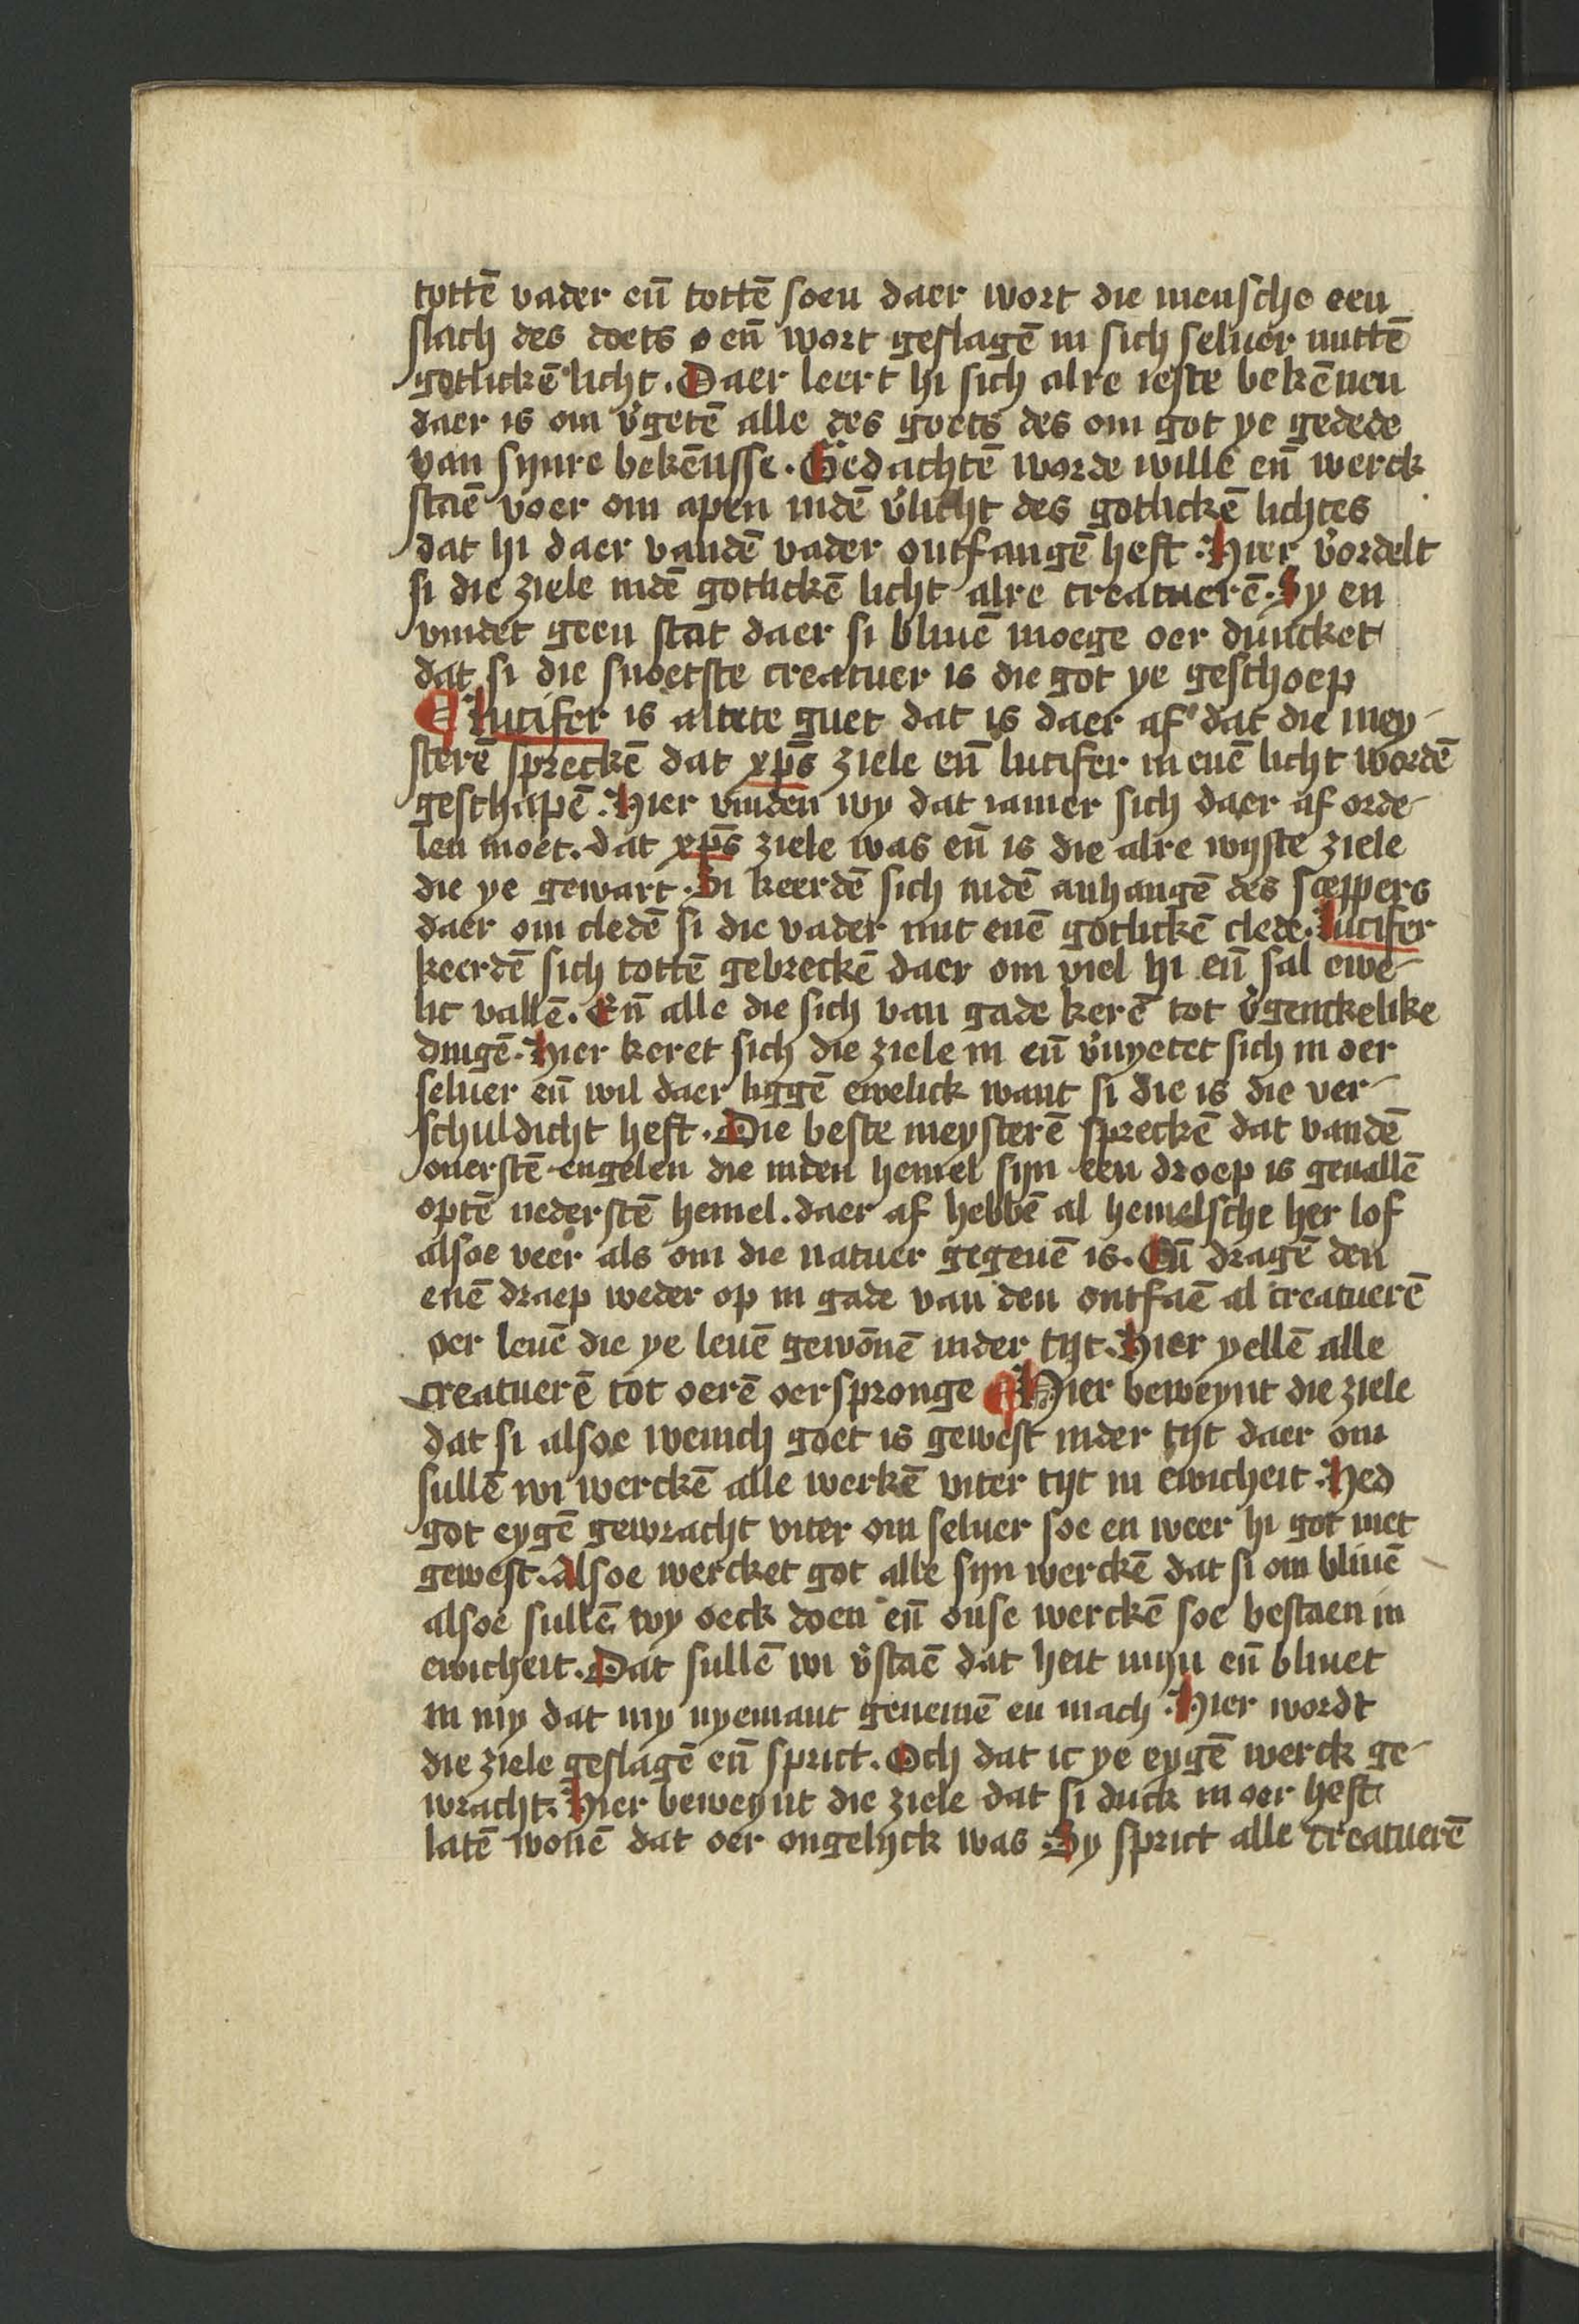 tottē vader eñ tottē soen daer wort die mensche een
slach des doets eñ wort geslagē in sich seluer mittē
gotlickē licht. Daer leert hi sich alre ierste bekēnen
daer is om v̄getē alle des goets des om got ye gedede
van synre bekēnisse. Gedachtē worde wille eñ werck
staē voer om apen indē v̄licht des gotlickē lichtes
dat hi daer vandē vader ontfangē heft. Hier v̄ordelt
si die ziele indē gotlickē licht alre creatuerē. Sy en
vindet geen stat daer si bliuē moege oer duncket
dat si die snoetste creatuer is die got ye geschoep
¶ Lucifer is altete guet dat is daer af dat die mey-
sterē spreckē dat xp̄s ziele eñ lucifer in enē licht wordē
geschapē. Hier vinden wy dat iamer sich daer af orde-
len moet. dat xp̄s ziele was eñ is die alre wijste ziele
die ye gewart. Si keerdē sich indē anhangē des sceppers
daer om cledē si die vader mit enē gotlickē clede. Lucifer
keerdē sich tottē gebreckē daer om viel hi eñ sal ewe-
lic vallē. Eñ alle die sich van gade kerē tot v̄genckelike
dingē. Hier keret sich die ziele in eñ v̄nyetet sich in oer
seluer eñ wil daer liggē ewelick want si die is die ver-
schuldicht heft. Die beste meysterē spreckē dat vandē
ouerstē engelen die inden hemel sijn een droep is geuallē
optē nederstē hemel. daer af hebbē al hemelsche her lof
alsoe veer als om die natuer gegeuē is. Eñ dragē den
enē draep weder op in gade van den ontfaē al creatuerē
oer leuē die ye leuē gewōnē inder tijt. Hier yellē alle
creatuerē tot oerē oerspronge ¶ Hier beweynt die ziele
dat si alsoe wenich goet is gewest inder tijt daer om
sullē wi werckē alle werkē viter tijt in ewicheit. Hed
got eygē gewracht viter om seluer soe en weer hi got niet
gewest. Alsoe wercket got alle sijn werckē dat si om bliuē
alsoe sullē wy oeck doen eñ onse werckē soe bestaen in
ewicheit. Dat sullē wi v̄staē dat heit mijn eñ bliuet
in my dat my nyemant genemē en mach. Hier wordt
die ziele geslagē eñ sprict. Och dat ic ye eygē werck ge-
wracht. Hier beweynt die ziele dat si duck in oer heft
latē wonē dat oer ongelijck was. Sy sprict alle creatuerē